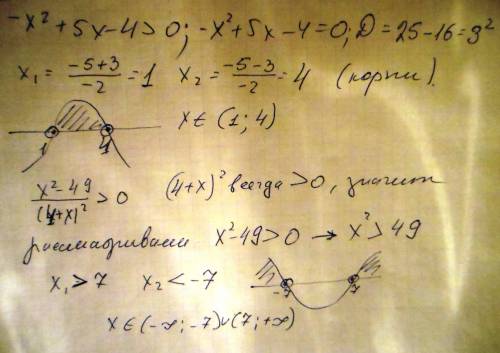 -x² + 5x - 4 > 0; -x² + 5x - 4 = 0; D = 25 - 16 = 3²
x₁ = (-5+3)/-2 = 1   x₂ = (-5-3)/-2 = 4   (корни).
x ∈ (1; 4)
1   4
(x² - 49)/(4+x)² > 0   (4+x)² всегда > 0, значит
рассматриваем   x² - 49 > 0 → x² > 49
x₁ > 7   x₂ < -7
-7   7
x ∈ (-∞; -7) ∪ (7; +∞)